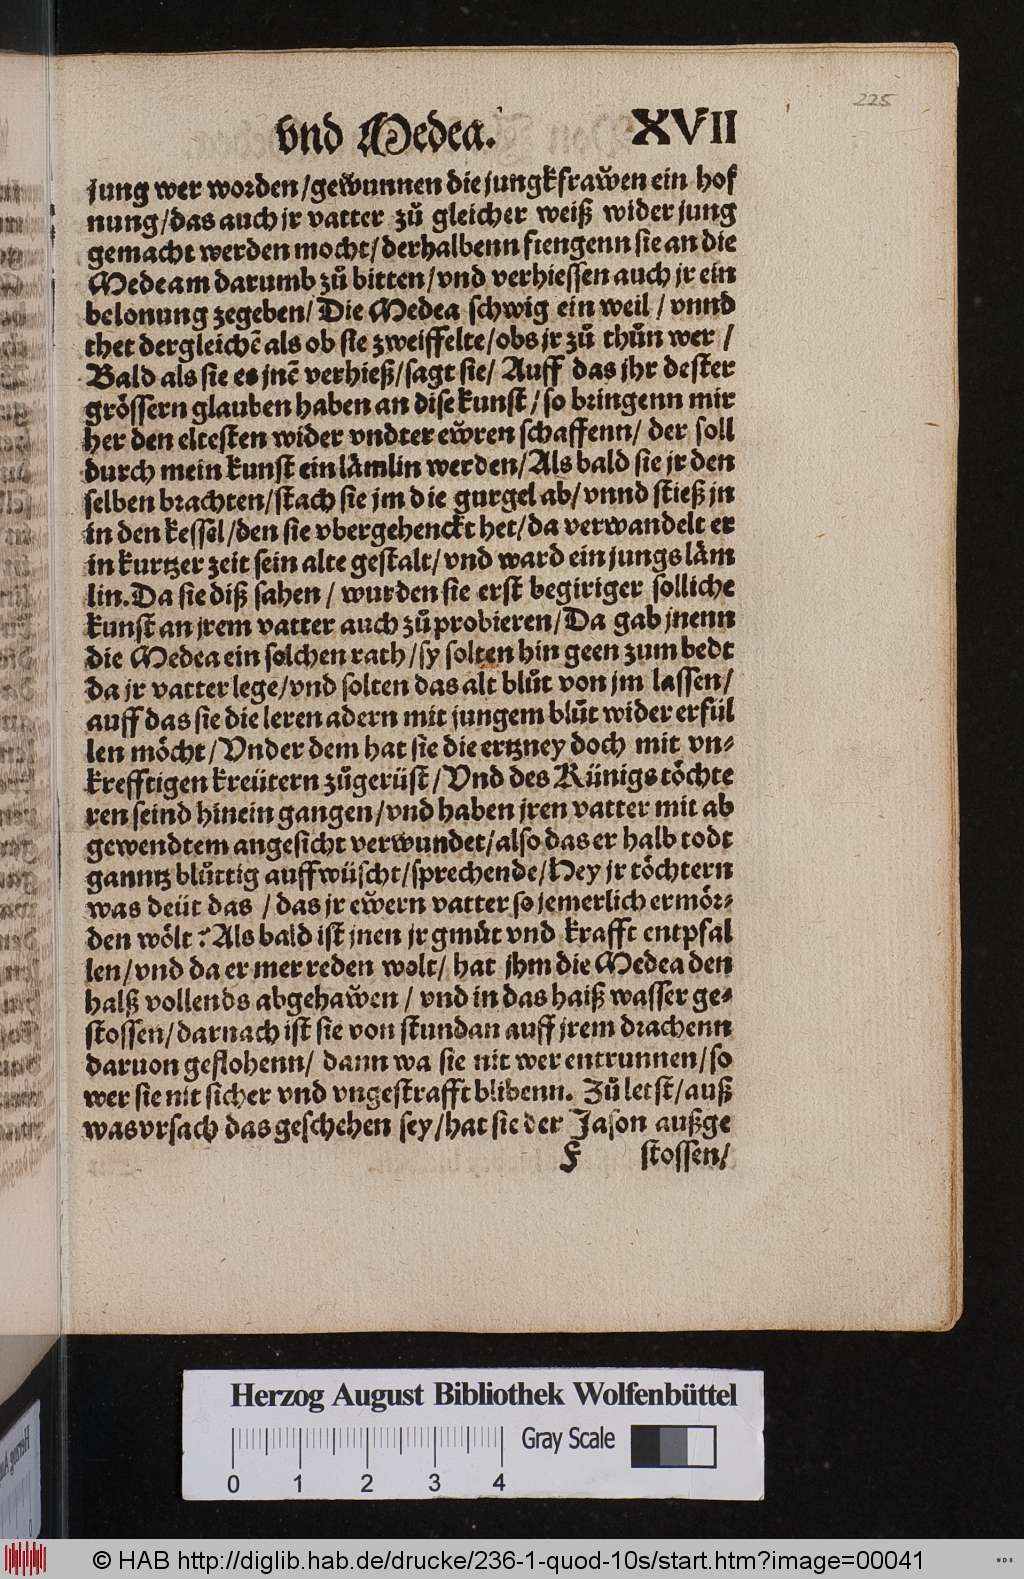 225
vnd Medea. XVII
jung wer worden/gewunnen die jungkfrawen ein hof
nung/das auch jr vatter zuͦ gleicher weiß wider jung
gemacht werden mocht/derhalbenn fiengenn sie an die
Medeam darumb zuͦ bitten/vnd verhiessen auch jr ein
belonung zegeben/Die Medea schwig ein weil/vnnd
thet dergleichẽ als ob sie zweiffelte/obs jr zuͦ thuͦn wer/
Bald als sie es jnẽ verhieß/sagt sie/Auff das jhr dester
groͤssern glauben haben an dise kunst/so bringenn mir
her den eltesten wider vndter ewren schaffenn/der soll
durch mein kunst ein laͤmlin werden/Als bald sie jr den
selben brachten/stach sie jm die gurgel ab/vnnd stieß jn
in den kessel/den sie vbergehenckt het/da verwandelt er
in kurtzer zeit sein alte gestalt/vnd ward ein jungs laͤm
lin. Da sie diß sahen/wurden sie erst begiriger solliche
kunst an jrem vatter auch zuͦ probieren/Da gab jnenn
die Medea ein solchen rath/sy solten hin geen zum bedt
da jr vatter lege/vnd solten das alt bluͦt von jm lassen/
auff das sie die leren adern mit jungem bluͦt wider erfül
len moͤcht/Vnder dem hat sie die ertzney doch mit vn⸗
krefftigen kreütern zuͦgerüst/Vnd des Künigs toͤchte
ren seind hinein gangen/vnd haben jren vatter mit ab
gewendtem angesicht verwundet/also das er halb todt
ganntz bluͦttig auffwüscht/sprechende/Hey jr toͤchtern
was deüt das/das jr ewern vatter so jemerlich ermoͤr⸗
den woͤlt? Als bald ist jnen jr gmuͤt vnd krafft entpfal
len/vnd da er mer reden wolt/hat jhm die Medea den
halß vollends abgehawen/vnd in das haiß wasser ge⸗
stossen/darnach ist sie von stundan auff jrem drachenn
daruon geflohenn/dann wa sie nit wer entrunnen/so
wer sie nit sicher vnd vngestrafft blibenn. Zuͦ letst/auß
was vrsach das geschehen sey/hat sie der Jason außge
F stossen/
Herzog August Bibliothek Wolfenbüttel
Gray Scale
0 1 2 3 4
© HAB http://diglib.hab.de/drucke/236-1-quod-10s/start.htm?image=00041